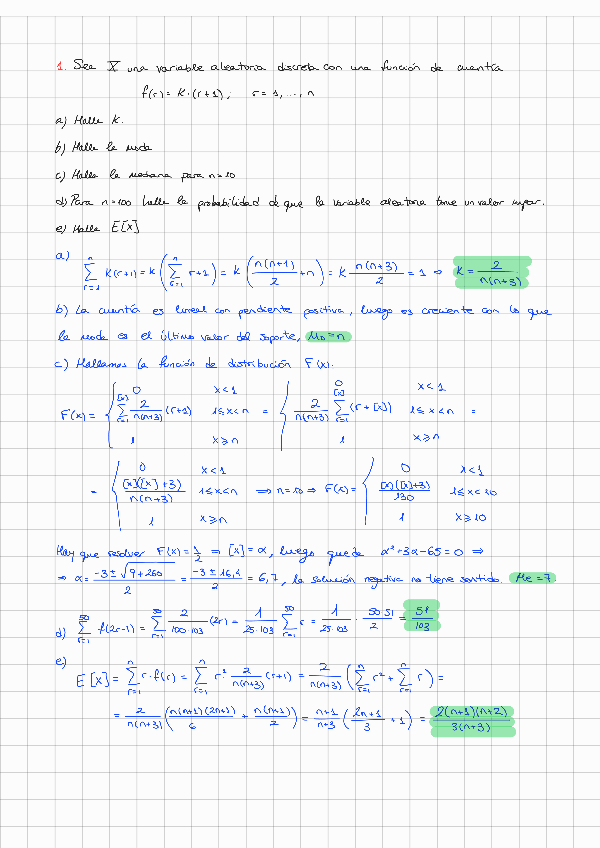 1. Sea X una variable aleatoria discreta con una función de cuantía
f(r) = K·(r+1); r = 1, ..., n
a) Halle K.
b) Halle la moda
c) Halle la mediana para n=10
d) Para n=100 halle la probabilidad de que la variable aleatoria tome un valor impar.
e) Halle E[X]
a) \sum_{r=1}^{n} K(r+1) = K (\sum_{r=1}^{n} r+1) = K (\frac{n(n+1)}{2} + n) = K \frac{n(n+3)}{2} = 1 ⇒ K = \frac{2}{n(n+3)}
b) La cuantía es lineal con pendiente positiva, luego es creciente con lo que
la moda es el último valor del soporte, Mo = n
c) Hallamos la función de distribución F(x).
F(x) = { 0 x<1 ; \sum_{r=1}^{[x]} \frac{2}{n(n+3)} (r+1) 1≤x<n ; 1 x≥n = { 0 x<1 ; \frac{2}{n(n+3)} \sum_{r=1}^{[x]} (r+[x]) 1≤x<n ; 1 x≥n =
= { 0 x<1 ; \frac{[x]([x]+3)}{n(n+3)} 1≤x<n ; 1 x≥n ⇒ n=10 ⇒ F(x) = { 0 x<1 ; \frac{[x]([x]+3)}{130} 1≤x<10 ; 1 x≥10
Hay que resolver F(x) = \frac{1}{2} ⇒ [x] = α, luego queda α²+3α-65=0 ⇒
⇒ α = \frac{-3±\sqrt{9+260}}{2} = \frac{-3±16,4}{2} = 6,7, la solución negativa no tiene sentido. Me = 7
d) \sum_{r=1}^{50} f(2r-1) = \sum_{r=1}^{50} \frac{2}{100·103} (2r) = \frac{1}{25·103} \sum_{r=1}^{50} r = \frac{1}{25·103} · \frac{50·51}{2} = \frac{51}{103}
e) E[X] = \sum_{r=1}^{n} r·f(r) = \sum_{r=1}^{n} r² \frac{2}{n(n+3)} (r+1) = \frac{2}{n(n+3)} (\sum_{r=1}^{n} r² + \sum_{r=1}^{n} r) =
= \frac{2}{n(n+3)} (\frac{n(n+1)(2n+1)}{6} + \frac{n(n+1)}{2}) = \frac{n+1}{n+3} (\frac{2n+1}{3} + 1) = \frac{2(n+1)(n+2)}{3(n+3)}